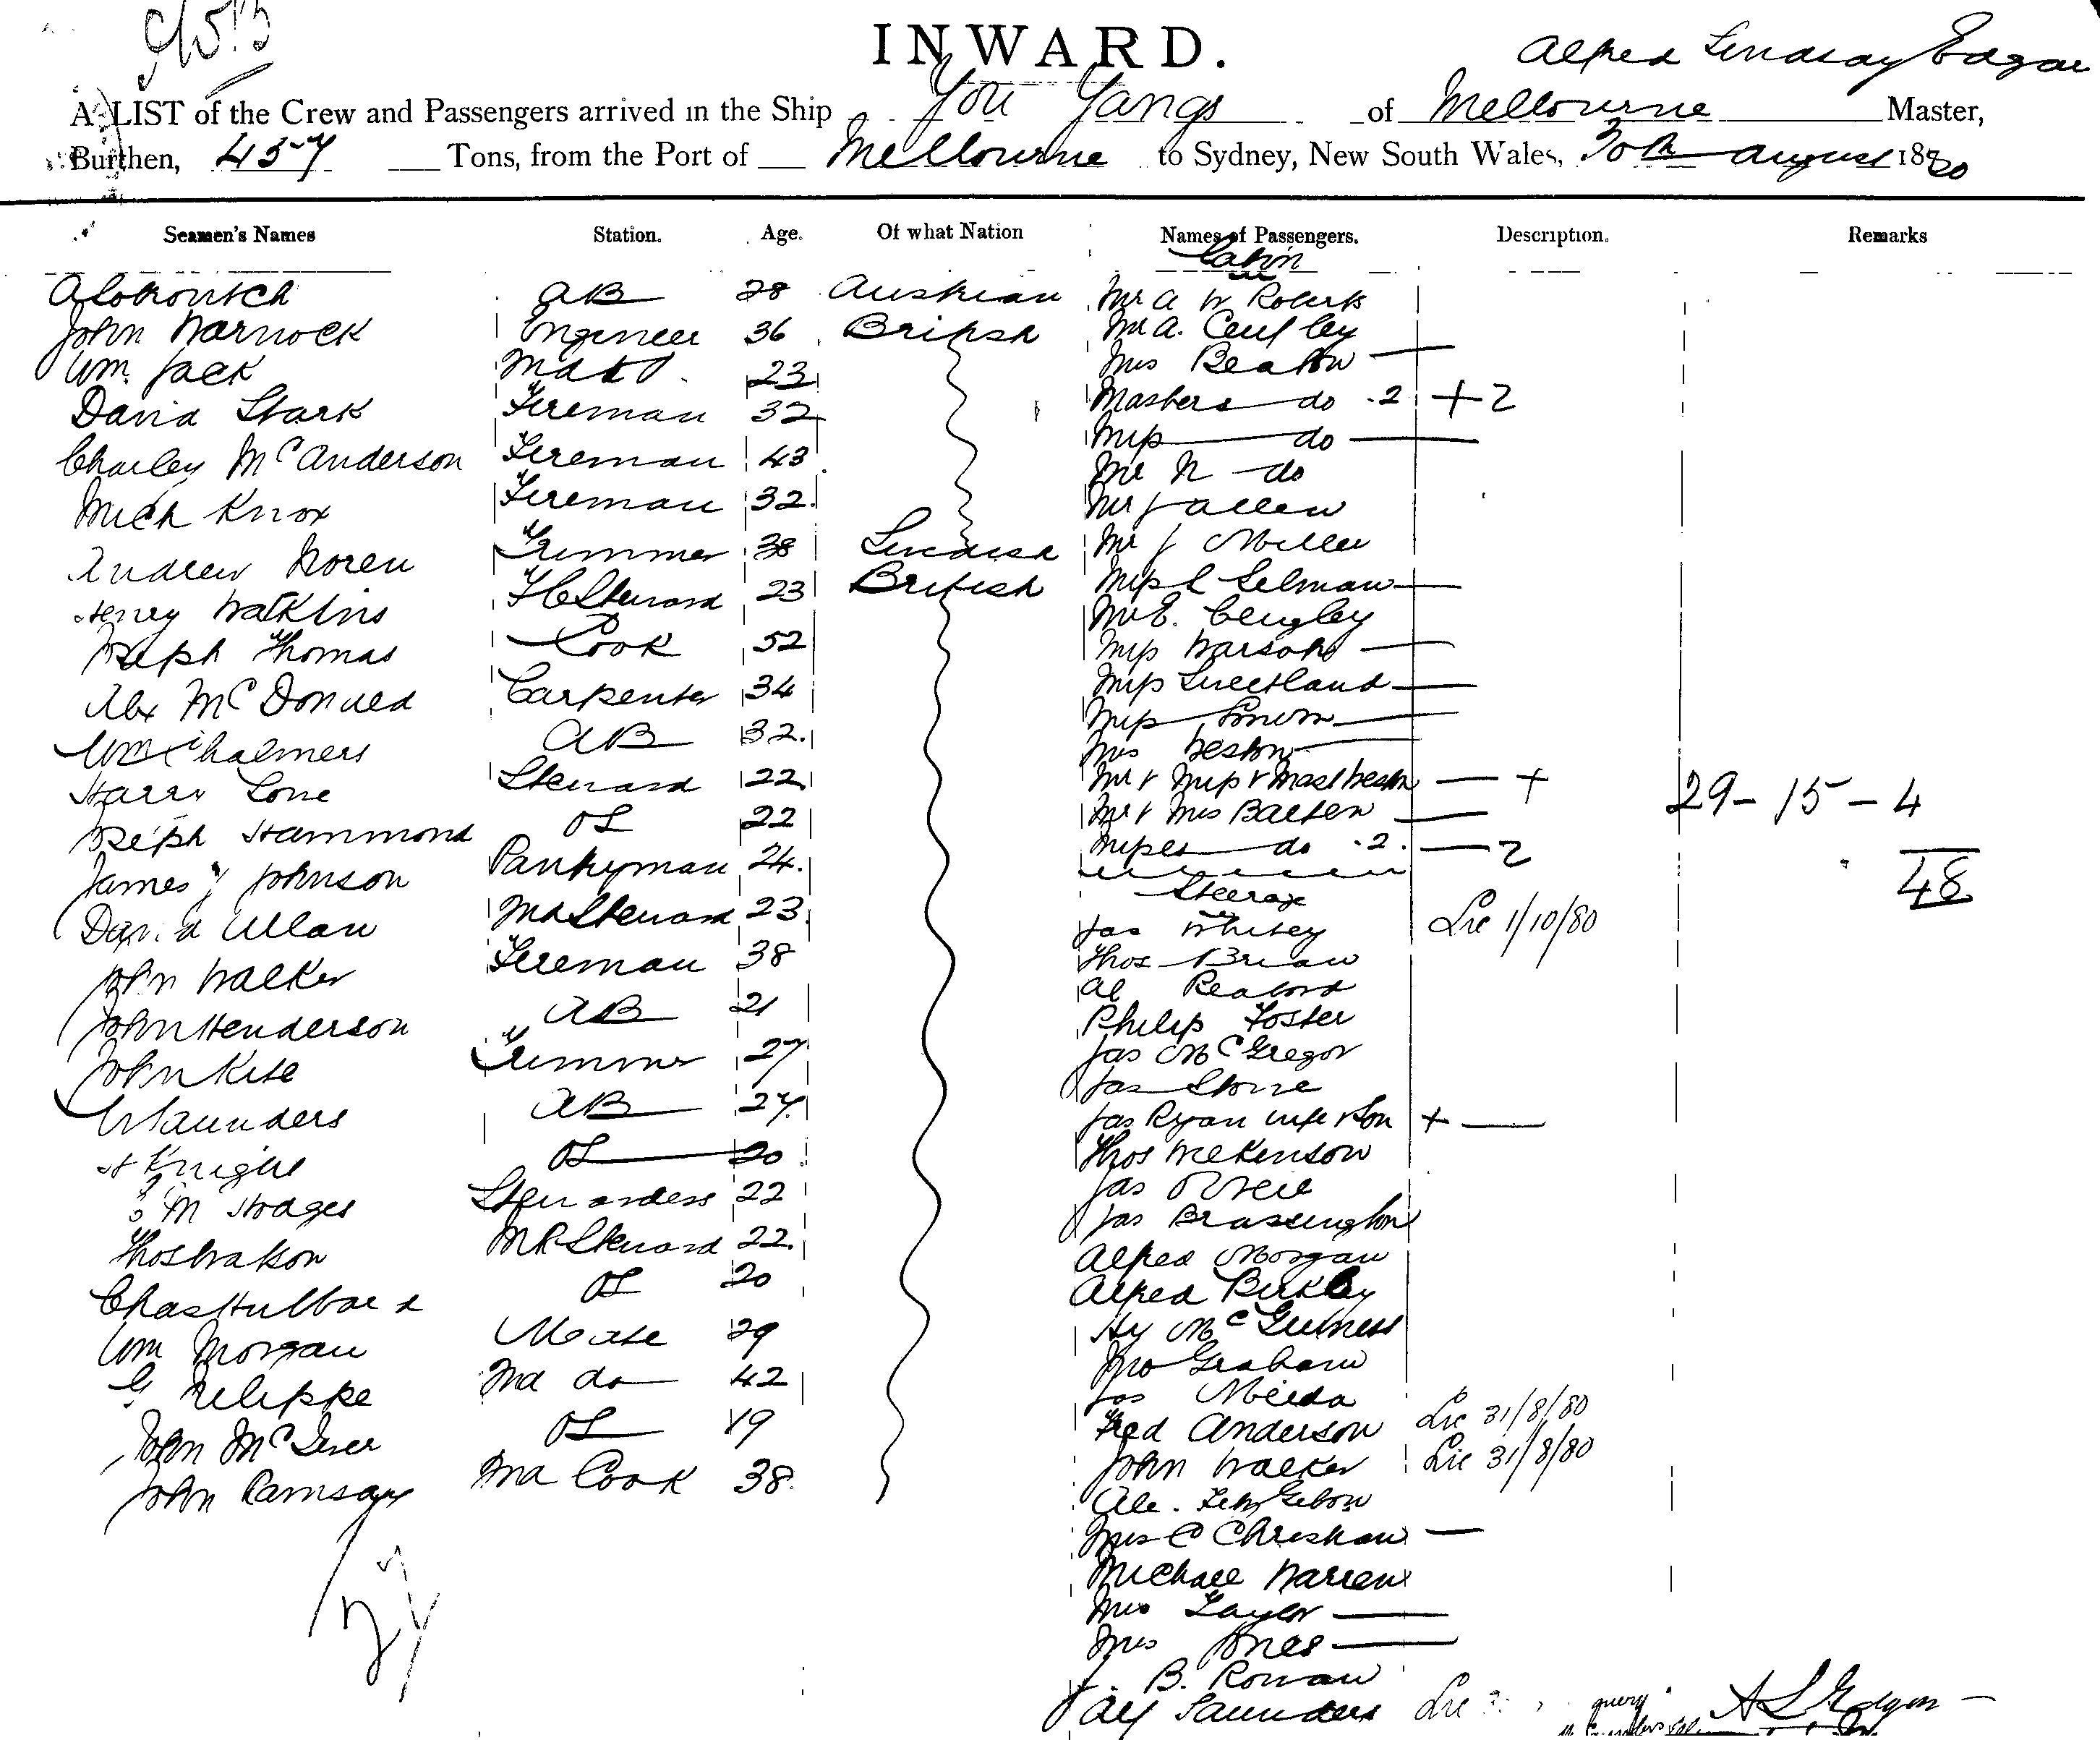 INWARD.
Alfred Lindsay Edgar
A LIST of the Crew and Passengers arrived in the Ship You Yangs of Melbourne Master,
Burthen, 457 Tons, from the Port of Melbourne to Sydney, New South Wales, 30th August 1880
Seamen's Names Station. Age. Of what Nation Names of Passengers. Description. Remarks
Cabin
AB 28 Austrian Mr A W Roberts
John Warnock Engineer 36 British Mr A.
Wm. Jack 23 Mrs Beaton —
David Stark Fireman 32 Masters do 2 + 2
Charley McAnderson Fireman 43 Miss do —
Mich Knox Fireman 32. Mr N do
Mr J Allen
Andrew Noren Trimmer 38 Swedish Mr J Miller
Henry Watkins Steward 23 British Miss L Selman —
Mr E.
Joseph Thomas Cook 52 Miss Watson —
Alex McDonald Carpenter 34 Miss Sweetland —
Wm Chalmers AB 32. Miss
Mrs Weston —
Harry Lone Steward 22 Mr & Miss & Mast Weston — +
Joseph Hammond OS 22 Mr & Mrs Batten —
29 - 15 - 4
James J Johnson Pantryman 24. Misses do 2. — 2
48
Steerage
David Allan Steward 23 Jas Whitey Lre 1/10/80
John Walker Fireman 38 Thos Brian
Al
John Henderson AB 21 Philip Foster
John Kite Trimmer 27 Jas McGregor
Jas Stone
W Saunders AB 27 Jas Ryan wife & Son + —
H Knight OS 20 Thos Wilkenson
M Hodges Stewardess 22 Jas O'Neil
Jas Brassington
Thos Watson Steward 22. Alfred Morgan
Chas Hulbard OS 20 Alfred Birkley
Wm Morgan Mate 29 Hy McGuiness
Jno Graham
G Filippe 2nd do 42 Jas
John McIver OS 19 Fred Anderson Lre 31/8/80
John Ramsay 2nd Cook 38. John Walker Lre 31/8/80
Mrs C Christian —
27 Michael Warren
Mrs Taylor —
Mrs Jones —
B. Rowan
Alf Saunders Lre query
A L Edgar